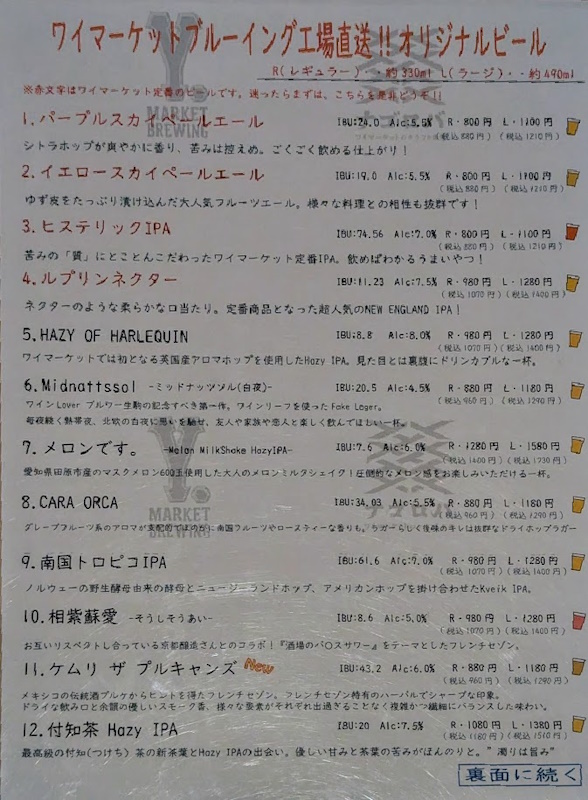 ワイマーケットブルーイング工場直送!!オリジナルビール
R(レギュラー)・・約330ml L(ラージ)・・約490ml
※赤文字はワイマーケット定番のビールです。迷ったらまずは、こちらを是非どうぞ!!
1.パープルスカイペールエール IBU:24.0 Alc:5.5% R・800円 L・1100円
(税込880円) (税込1210円)
シトラホップが爽やかに香り、苦みは控えめ。ごくごく飲める仕上がり!
2.イエロースカイペールエール IBU:19.0 Alc:5.5% R・800円 L・1100円
(税込880円) (税込1210円)
ゆず皮をたっぷり漬け込んだ大人気フルーツエール。様々な料理との相性も抜群です!
3.ヒステリックIPA IBU:74.56 Alc:7.0% R・800円 L・1100円
(税込880円) (税込1210円)
苦みの「質」にとことんこだわったワイマーケット定番IPA。飲めばわかるうまいやつ!
4.ルプリンネクター IBU:11.23 Alc:7.5% R・980円 L・1280円
(税込1070円) (税込1400円)
ネクターのような柔らかな口当たり。定番商品となった超人気のNEW ENGLAND IPA!
5.HAZY OF HARLEQUIN IBU:8.8 Alc:8.0% R・980円 L・1280円
(税込1070円) (税込1400円)
ワイマーケットでは初となる英国産アロマホップを使用したHazy IPA。見た目とは裏腹にドリンカブルな一杯。
6.Midnattssol -ミッドナッツソル(白夜)- IBU:20.5 Alc:4.5% R・880円 L・1180円
(税込960円) (税込1290円)
ワインLover ブルワー生駒の記念すべき第一作。ワインリーフを使ったFake Lager。
毎夜続く熱帯夜、北欧の白夜に思いを馳せ、友人や家族や恋人と楽しく飲んでほしい一杯。
7.メロンです。 -Melon MilkShake HazyIPA- IBU:7.6 Alc:6.0% R・1280円 L・1580円
(税込1400円) (税込1730円)
愛知県田原市産のマスクメロン600玉使用した大人のメロンミルクシェイク!圧倒的なメロン感をお楽しみいただける一杯。
8.CARA ORCA IBU:34.03 Alc:5.5% R・880円 L・1180円
(税込960円) (税込1290円)
グレープフルーツ系のアロマが支配的でほのかに南国フルーツやロースティーな香りも。ラガーらしく後味のキレは抜群なドライホップラガー
9.南国トロピコIPA IBU:61.6 Alc:7.0% R・980円 L・1280円
(税込1070円) (税込1400円)
ノルウェーの野生酵母由来の酵母とニュージーランドホップ、アメリカンホップを掛け合わせたKveik IPA。
10.相紫蘇愛 -そうしそうあい- IBU:8.6 Alc:5.0% R・980円 L・1280円
(税込1070円) (税込1400円)
お互いリスペクトし合っている京都醸造さんとのコラボ!『酒場のバ〇スサワー』をテーマとしたフレンチセゾン。
11.ケムリ ザ プルキャンズ New IBU:43.2 Alc:6.0% R・880円 L・1180円
(税込960円) (税込1290円)
メキシコの伝統酒プルケからヒントを得たフレンチセゾン。フレンチセゾン特有のハーバルでシャープな印象。
ドライな飲み口と余韻の優しいスモーク香、様々な要素がそれぞれ出過ぎることなく複雑かつ繊細にバランスした味わい。
12.付知茶 Hazy IPA IBU:20 Alc:7.5% R・1080円 L・1380円
(税込1180円) (税込1510円)
最高級の付知(つけち) 茶の新茶葉とHazy IPAの出会い。優しい甘みと茶葉の苦みがほんのりと。"濁りは旨み"
裏面に続く
Y. MARKET BREWING
Y. MARKET BREWING